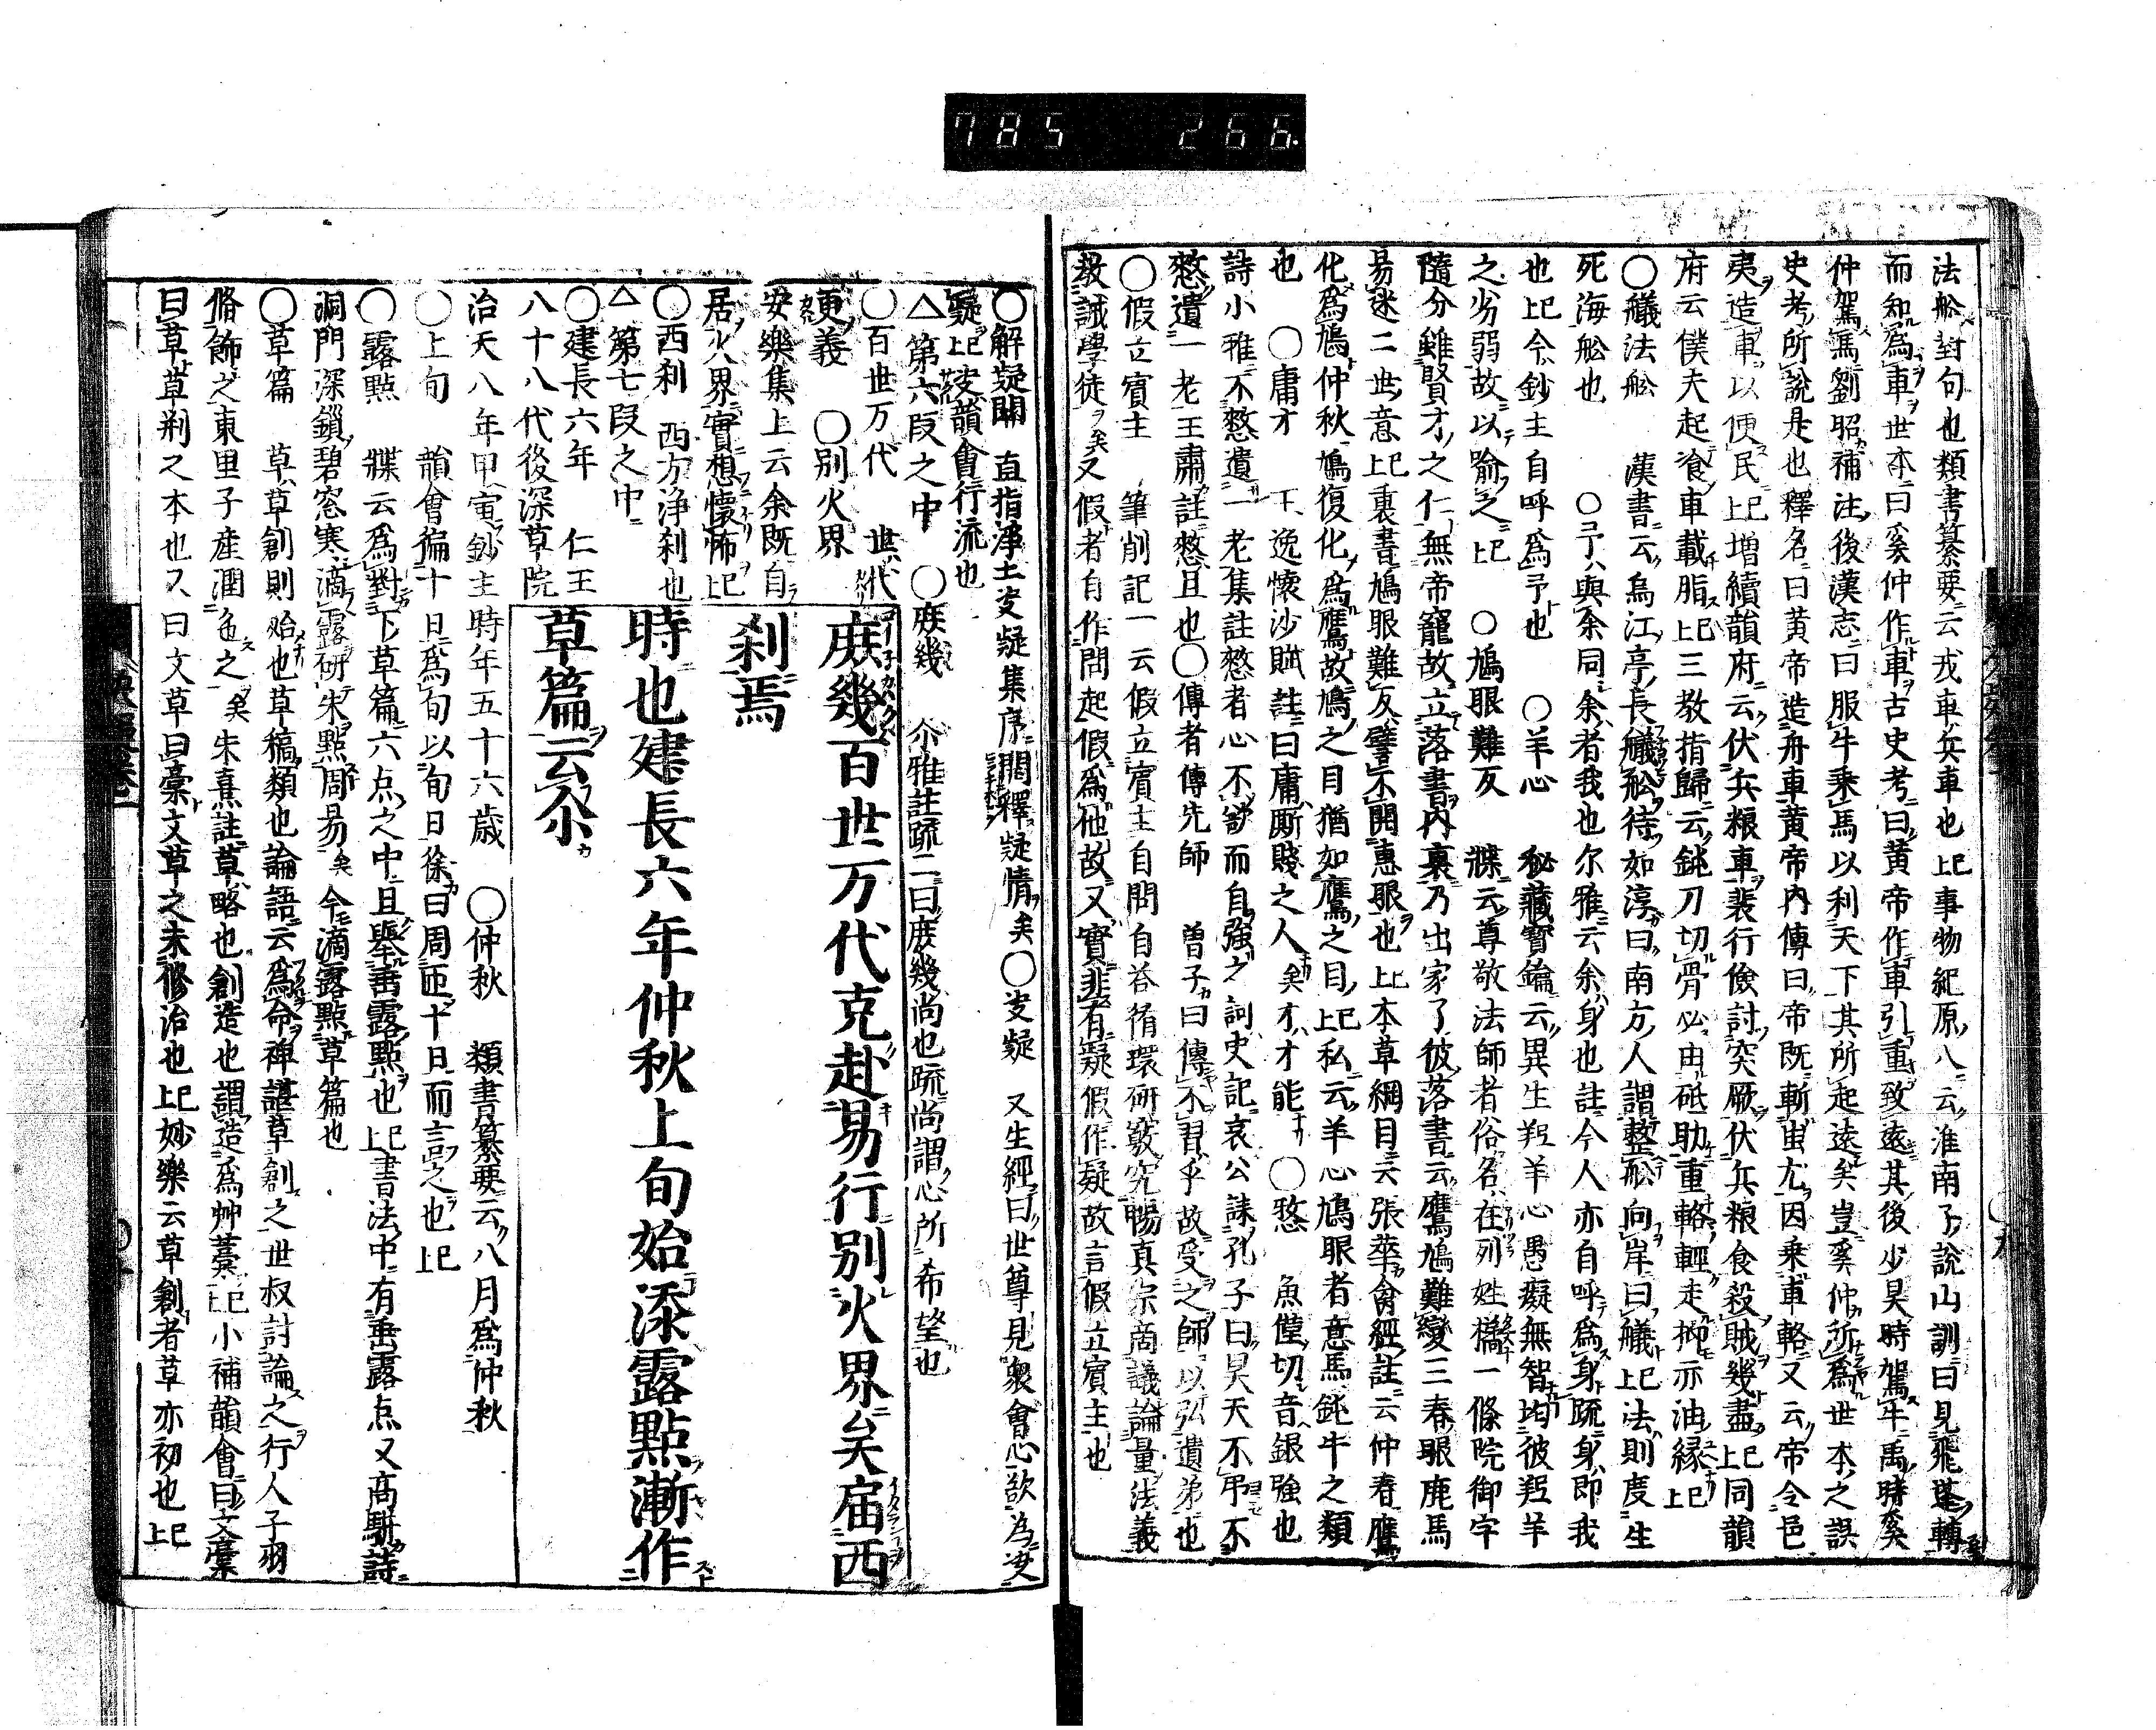 785 266
法舩對句也類書纂要云戎車兵車也上已事物紀原八云淮南子說山訓曰見飛蓬轉
而知為車世本曰奚仲作車古史考曰黃帝作車引重致遠其後少昊時駕牛禹時奚
仲駕馬劉昭補注後漢志曰服牛乘馬以利天下其所起遠矣豈奚仲所為世本之誤
史考所說是也釋名曰黃帝造舟車黃帝內傳曰帝既斬蚩尤因乘車輅又云帝令邑
夷造車以便民上已增續韻府云伏兵粮車裴行儉討突厥伏兵粮食殺賊幾盡上已同韻
府云僕夫起飡車載脂上已三教指歸云鈍刀切骨必由砥助重輅輕走抑亦油縁上已
〇艤法舩 漢書云烏江亭長艤舩待如淳曰南方人謂整舩向岸曰艤上已法則度生
死海舩也 〇予與余同余者我也尔雅云余身也註今人亦自呼為身疏身即我
也上已今鈔主自呼為予也 〇羊心 秘藏寶鑰云異生羝羊心愚癡無智均彼羝羊
之劣弱故以喩之上已 〇鳩眼難反 牒云尊敬法師者俗名在列姓橘一條院御宇
隨分雖賢才之仁無帝寵故立落書內裏乃出家了彼落書云鷹鳩難變三春眼鹿馬
易迷二世意上已裏書鳩眼難反譬不開惠眼也上上本草綱目云張華禽經註云仲春鷹
化為鳩仲秋鳩復化為鷹故鳩之目猶如鷹之目上已私云羊心鳩眼者意馬鈍牛之類
也 〇庸才 王逸懷沙賦註曰庸厮賤之人矣才才能 〇憖 魚僅切音銀強也
詩小雅不憖遺一老集註憖者心不欲而自強之詞史記哀公誄孔子曰昊天不弔不
憖遺一老王肅註憖且也〇傳者傳先師 曽子曰傳不習乎故受之師以弘遺弟也
〇假立賓主 筆削記一云假立賓主自問自荅循環研竅究暢真宗商議論量法義
教誡學徒矣又假者自作問起假為他故又實非有疑假作疑故言假立賓主也
〇解疑開 直指浄土支疑集序開釋疑情矣〇支疑 又生經曰世尊見衆會心欲為决
疑上已韻會行流也
△第六段之中 〇庻幾 尓雅註疏二曰庻幾尚也疏尚謂心所希望也
〇百世万代 世代
更義 〇別火界
安樂集上云余既自
居火界實想懷怖上已
〇西刹 西方浄刹也
△第七段之中
〇建長六年 仁王
八十八代後深草院
庻幾百世万代克赴易行別火界矣届西
刹焉
時也建長六年仲秋上旬始添露點漸作
草篇云尓
治天八年甲寅鈔主時年五十六歳 〇仲秋 類書纂要云八月為仲秋
〇上旬 韻會徧十日為旬以旬日徐曰周匝十日而言之也上已
〇露點 牒云為對下草篇六点之中且舉垂露點也上已書法中有垂露点又高駢詩
洞門深鎖碧窓寒滴露研朱點周易矣今滴露點草篇也
〇草篇 草草創則始也草稿類也論語云為命裨諶草創之世叔討論之行人子羽
脩飾之東里子産潤色之矣朱熹註草略也創造也謂造為艸藁上已小補韻會曰文藁
曰草草剏之本也又曰文草曰藁文草之未修治也上已妙樂云草創者草亦初也上已